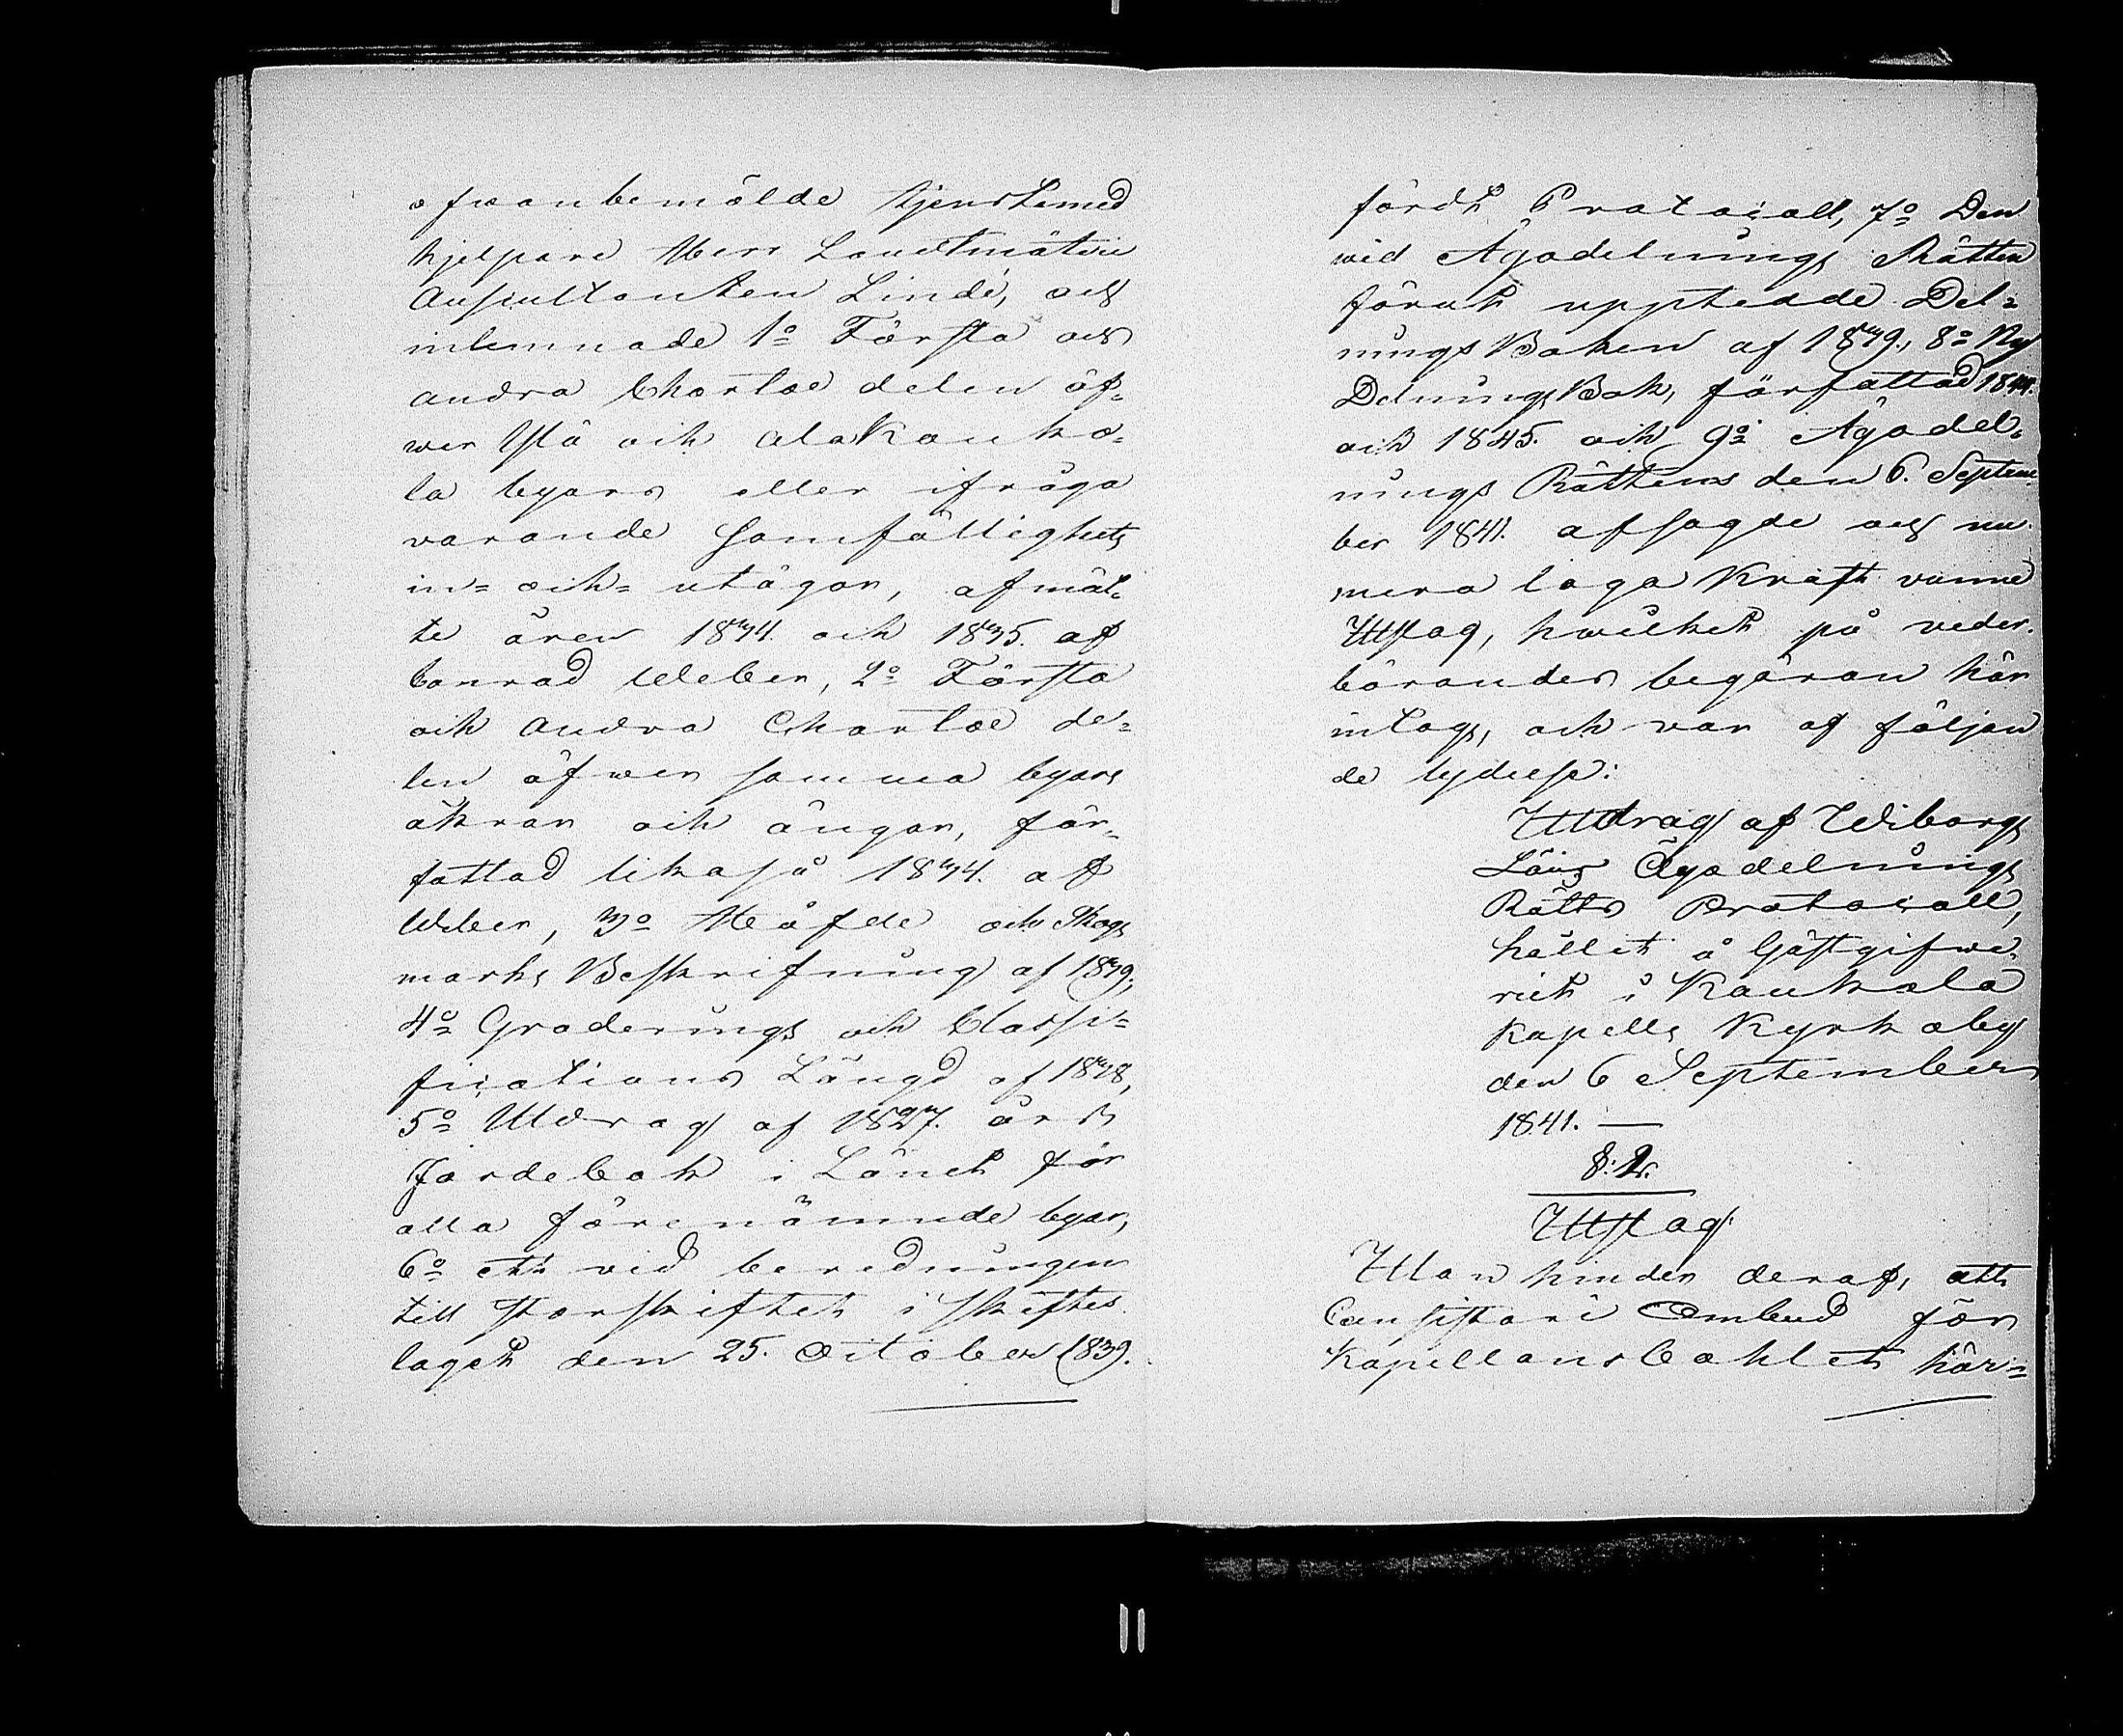 ofvanbemälde tjensteméd
hjelpare Herr Landtmäterie
Auscultanten Linde, och
inlemnade 1o Första och
andra Chartæ delen öf-
wer Ylä och Alakauko-
la byars eller ifråga
varande Samfällighets
in= och= utägor, afmät-
te åren 1834. och 1835. af
Conrad Weber, 2o Första
och andra Chartæ de-
len öfwer samma byars
åkrar och ängar, för-
fattad likaså 1834. af
Weber, 3o Häfde och Skogs
marks Beskrifning af 1839,
4o Graderings och Classi-
fications Längd af 1838,
5o Utdrag af 1827. års
Jordebok i Länet för
alla förenämnde byar,
6o ett vid beredningen
till Storskiftet i skiftes
laget den 25. October 1839.
fördt Protocoll, 7o Den
wid Ägodelnings Rätten
förut upptedde Del-
nings Boken af 1839., 8o Ny
Delnings Bok, författad 1844.
och 1845. och 9o Ägodel-
nings Rättens den 6. Septem-
ber 1841. afsagde och nu-
mera laga Kraft vunne
Utslag, hwilket på veder-
börandes begäran här
intogs, och var af följan
de lydelse:
Utdrag af Wiborgs
Läns Ägodelnings
Rätts Protocoll,
hållit å Gästgifwe-
riet i Kaukola
Kapells Kyrkoby
den 6 September
1841. —
§: 2.
Utslag:
Utan hinder deraf, att
Consistorii Ombud för
Kapellansbohlet här-